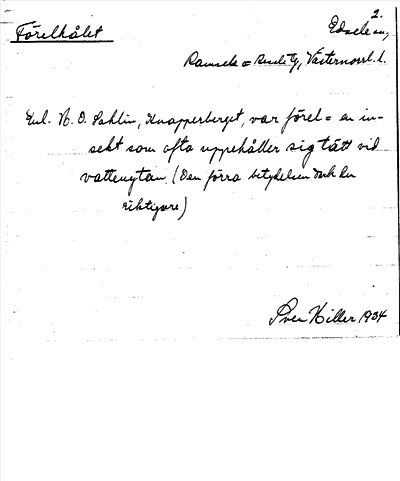 2.
Förelhålet Edsele sn,
Ramsele o Resele tg, Västernorrl. l.
Enl. N. O. Sahlin, Knapperberget, var förel = en in-
sekt som ofta uppehåller sig tätt vid
vattenytan. (Den förra betydelsen
riktigare)
Sven Hiller 1934